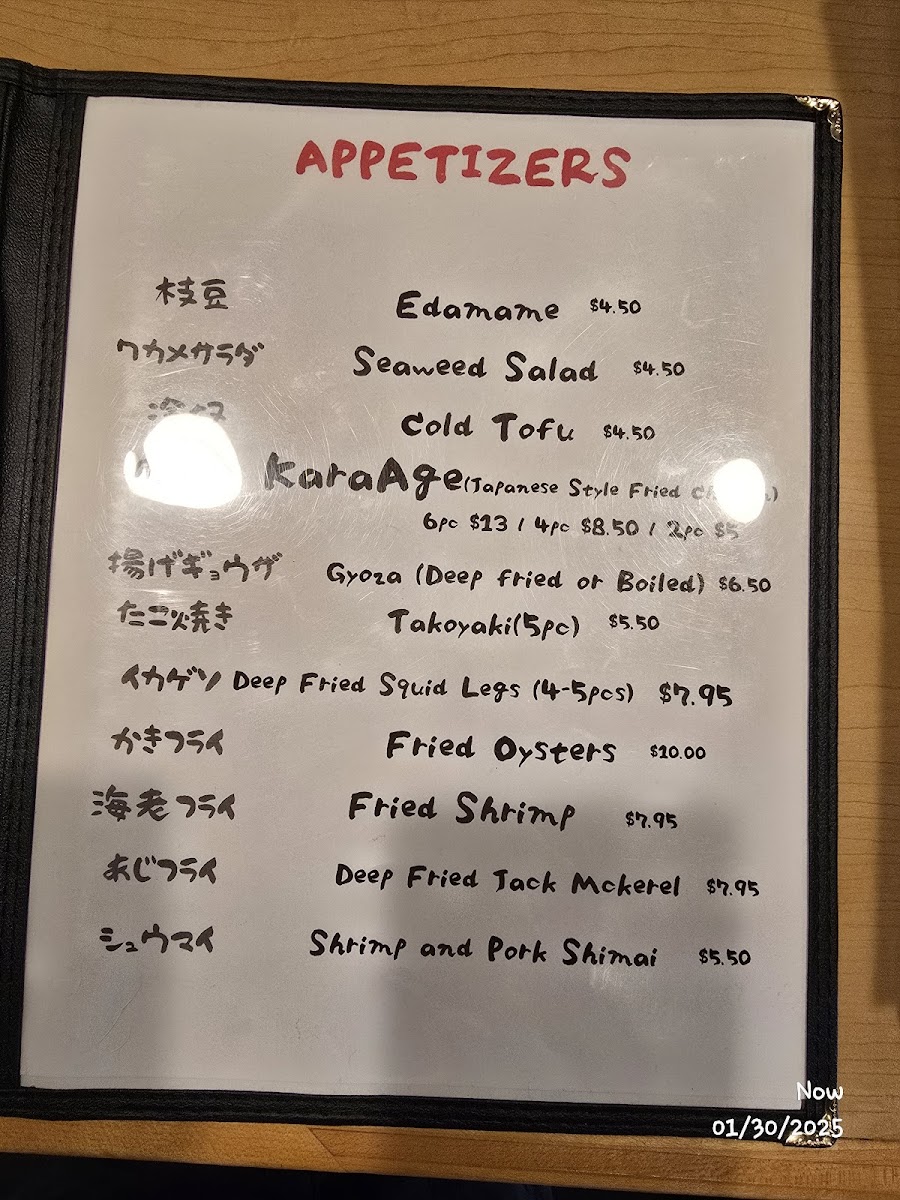 APPETIZERS
枝豆 Edamame $4.50
ワカメサラダ Seaweed Salad $4.50
Cold Tofu $4.50
KaraAge (Japanese Style Fried
6pc $13 / 4pc $8.50 / 2pc $5
揚げギョウザ Gyoza (Deep fried or Boiled) $6.50
たこ焼き Takoyaki(5pc) $5.50
イカゲソ Deep Fried Squid Legs (4-5pcs) $7.95
かきフライ Fried Oysters $10.00
海老フライ Fried Shrimp $7.95
あじフライ Deep Fried Jack Mckerel $7.95
シュウマイ Shrimp and Pork Shimai $5.50
Now
01/30/2025